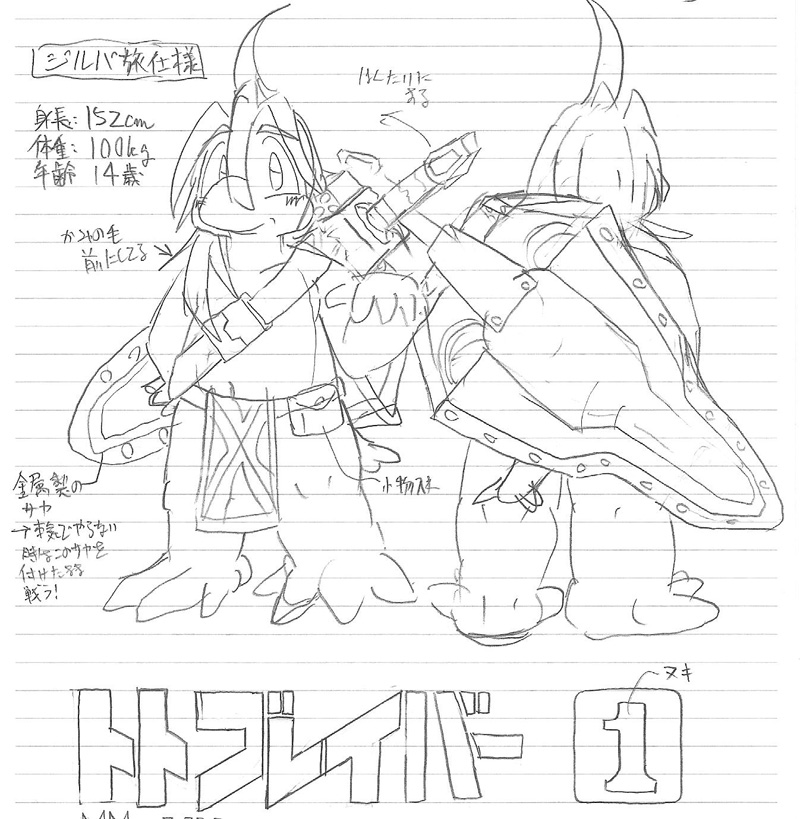 ジルバ旅仕様
身長: 152cm
体重: 100kg
年齢 14歳
かみの毛
前にしてる
金属製の
サヤ
→本気でやらない
時はこのサヤを
付けたまま
戦う!
小物入れ
トトブレイバー 1
ヌキ